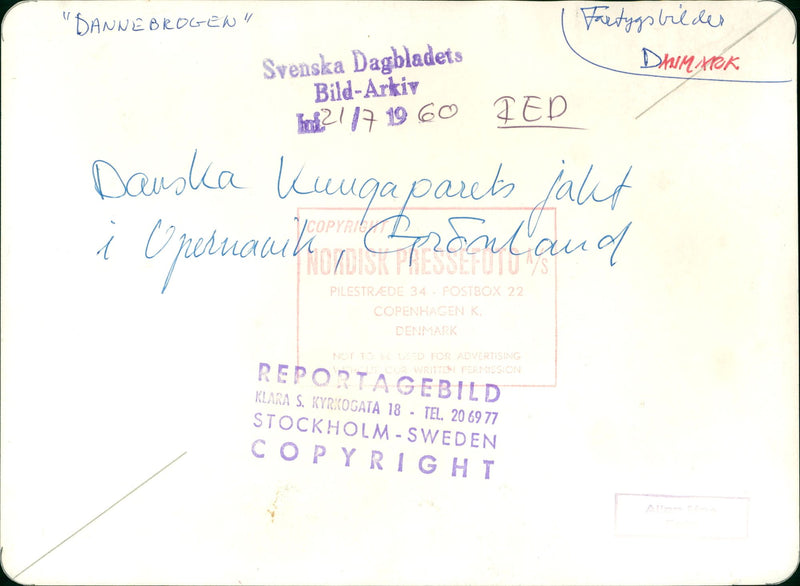 "DANNEBROGEN"
Fartygsbilder
DANMARK
Svenska Dagbladets
Bild-Arkiv
Inl. 21/7 1960 IED
Danska Kungaparets jakt
i Upernavik, Grönland
COPYRIGHT
NORDISK PRESSEFOTO A/S
PILESTRÆDE 34 · POSTBOX 22
COPENHAGEN K.
DENMARK
NOT TO BE USED FOR ADVERTISING
WITHOUT OUR WRITTEN PERMISSION
REPORTAGEBILD
KLARA S. KYRKOGATA 18 - TEL. 20 69 77
STOCKHOLM - SWEDEN
COPYRIGHT